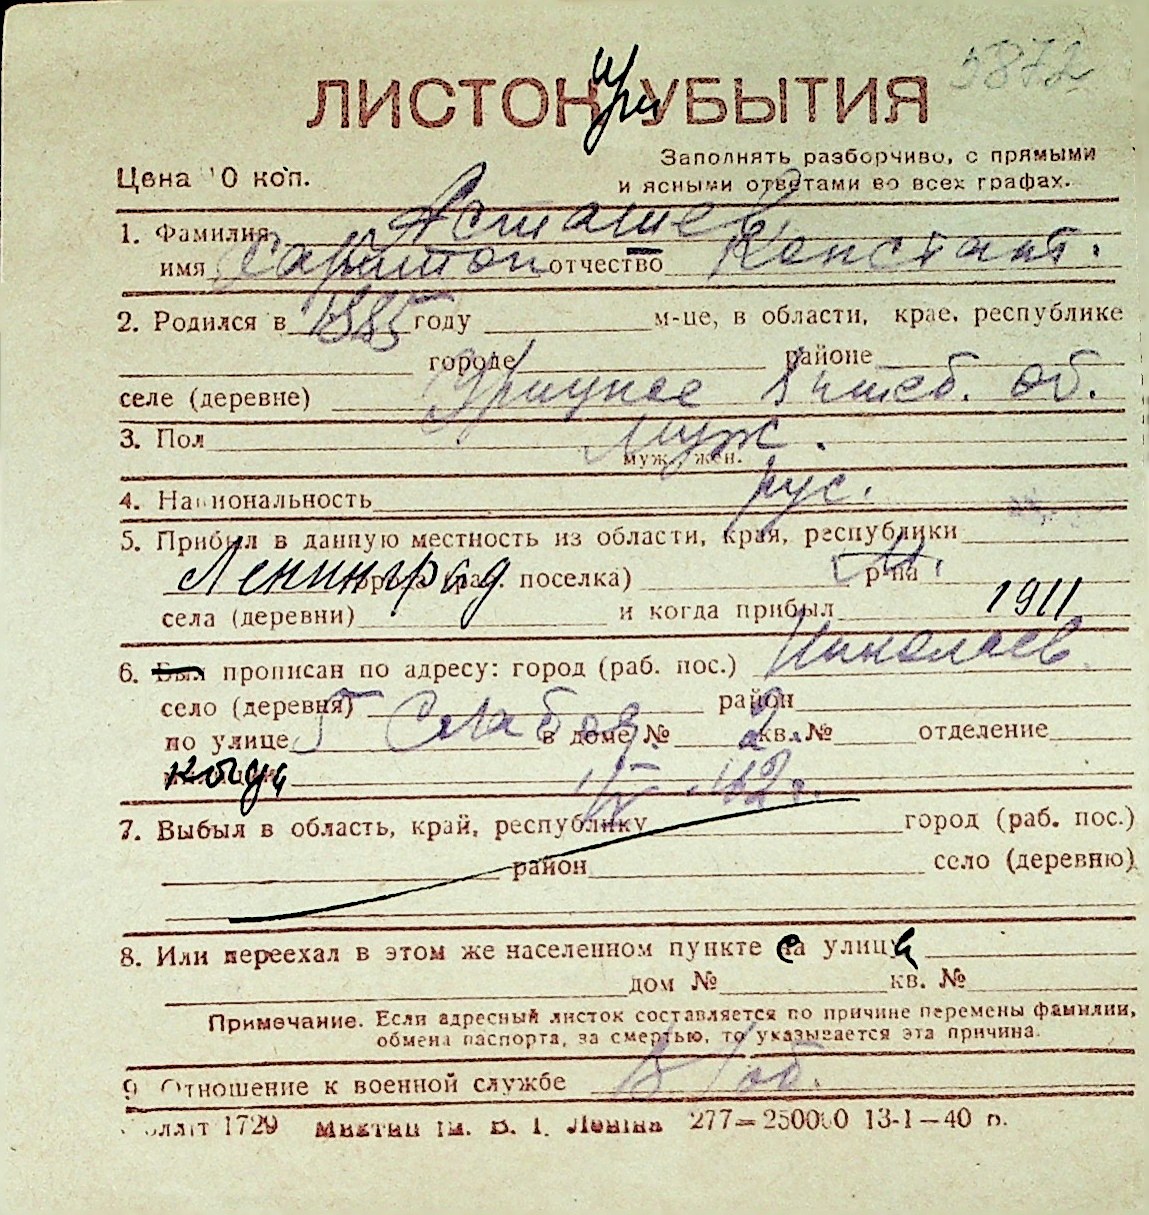 5872
ЛИСТОК при УБЫТИЯ
Цена 10 коп.
Заполнять разборчиво, с прямыми
и ясными ответами во всех графах.
1. Фамилия Асташев
имя отчество Констант.
2. Родился в 1885 году м-це, в области, крае, республике
городе районе
селе (деревне) Урицкое Витеб. об.
3. Пол Муж.
муж., жен.
4. Национальность рус.
5. Прибыл в данную местность из области, края, республики
Ленинград поселка) р-на
села (деревни) и когда прибыл 1911
6. Был прописан по адресу: город (раб. пос.) Николаев.
село (деревня) район
по улице 5 Слобод. в доме № 2 кв. № отделение
когда IV. 42 г.
7. Выбыл в область, край, республику город (раб. пос.)
район село (деревню)
8. Или переехал в этом же населенном пункте с улицы
дом № кв. №
Примечание. Если адресный листок составляется по причине перемены фамилии,
обмена паспорта, за смертью, то указывается эта причина.
9. Отношение к военной службе в/об.
1729 им. В. І. Леніна 277—250000 13-I—40 р.